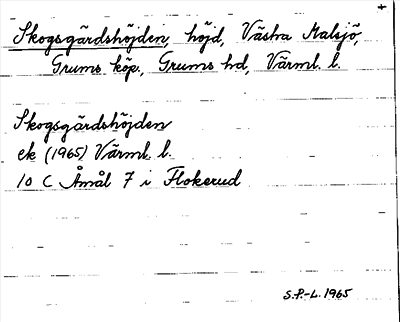 Skogsgärdshöjden, höjd, Västra Malsjö,
Grums köp., Grums hd, Värml. l.
Skogsgärdshöjden
ek (1965) Värml. l.
10 C Åmål 7 i Flokerud
S.P.-L. 1965